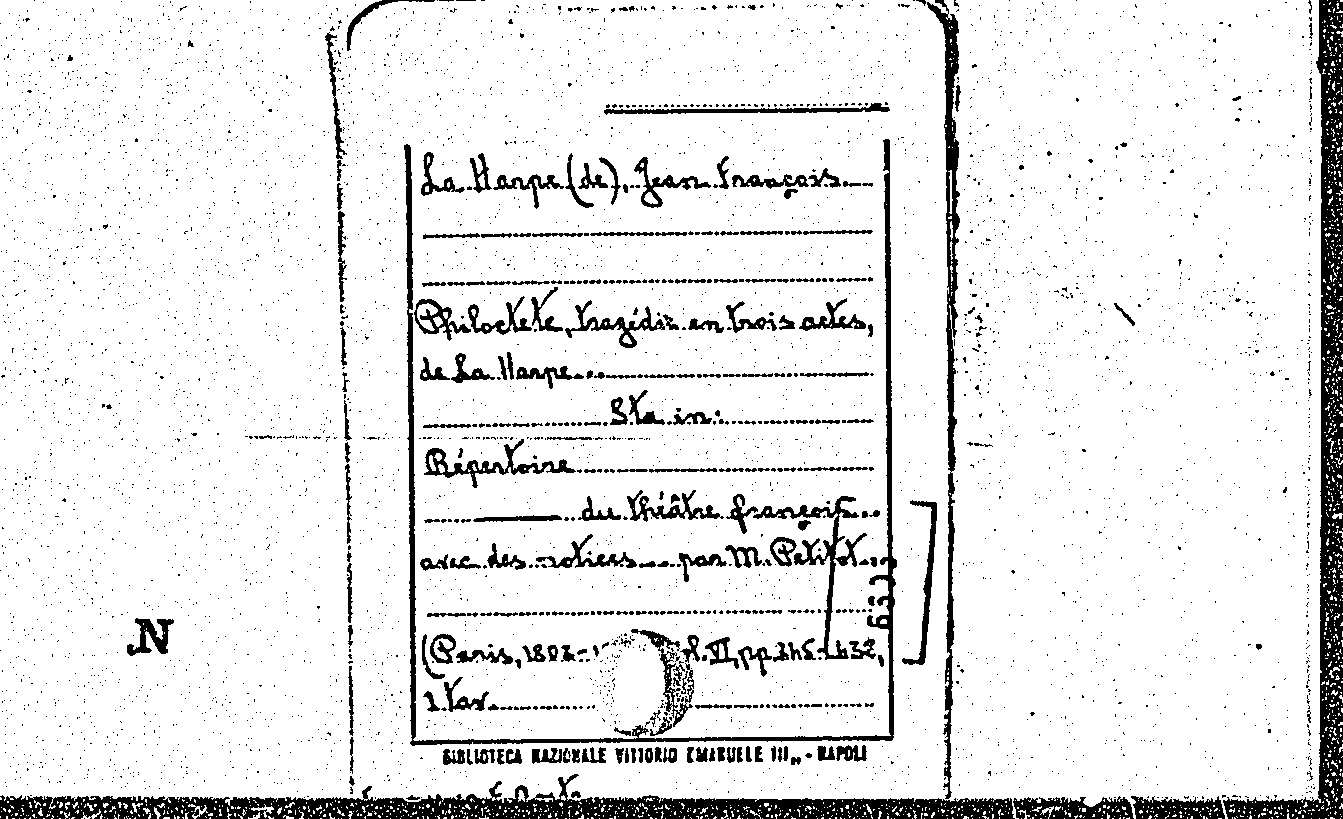 La Harpe (de), Jean François.
Philoctete, tragédie en trois actes,
de La Harpe...
Sta in:
Répertoire
du théâtre françois...
avec des notices... par M. Petitot...
(Paris, 1803- vol. VI, pp. 345-432,
1 tav.
N
BIBLIOTECA NAZIONALE VITTORIO EMANUELE III„ - NAPOLI